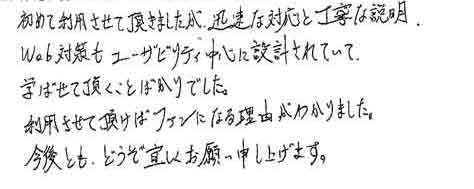 初めて利用させて頂きましたが、迅速な対応と丁寧な説明、
Web対策もユーザビリティ中心に設計されていて、
学ばせて頂くことばかりでした。
利用させて頂けばファンになる理由がわかりました。
今後とも、どうぞ宜しくお願い申し上げます。